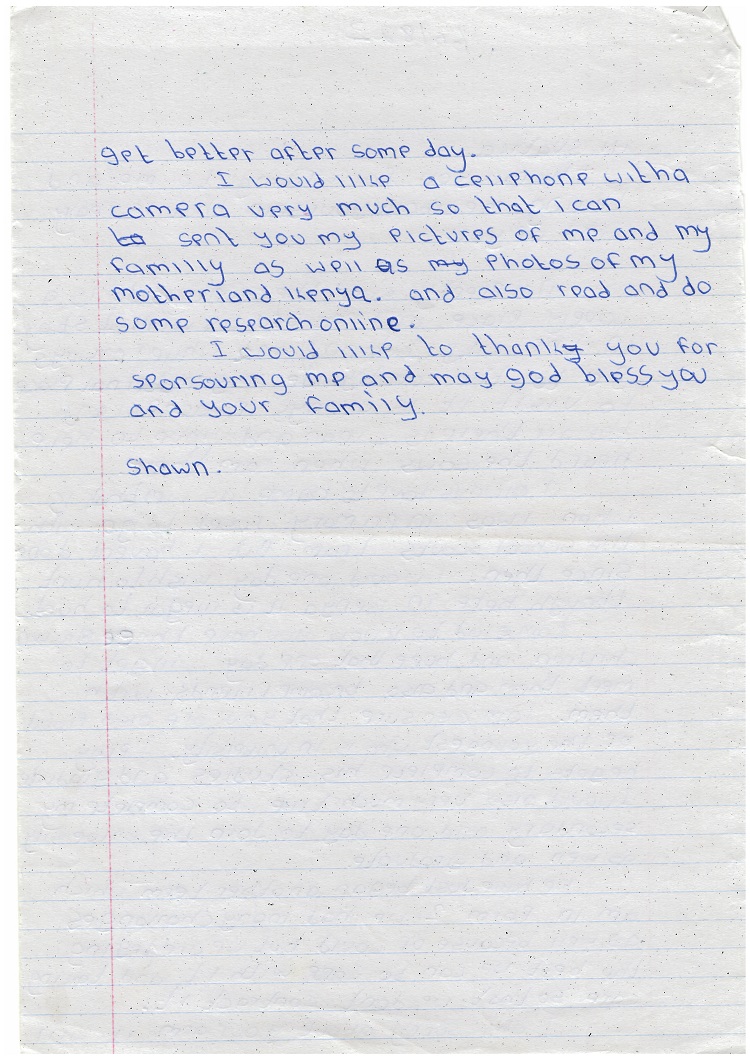 get better after some day.
I would like a cellphone with a
camera very much so that I can
to sent you my pictures of me and my
familly as well as my photos of my
motherland kenya. and also read and do
some research online.
I would like to thank you for
sponsouring me and may god bless you
and your family.
Shawn.